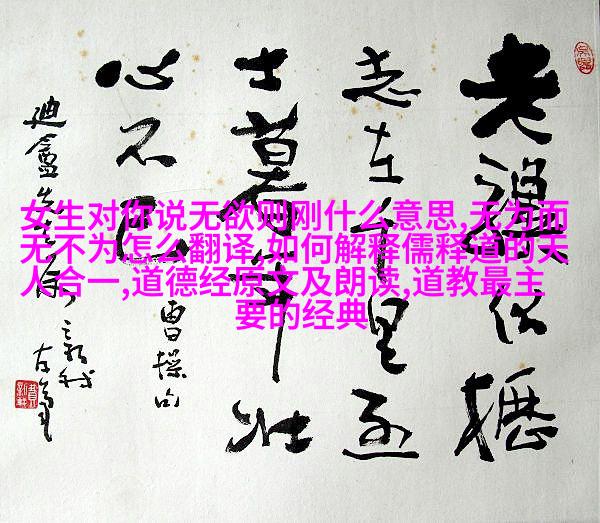 老驥伏櫪
志在千里烈
士暮年壮
心不已
曹操句
迪盦先生属
新我
左筆
女生对你说无欲则刚什么意思,无为而
无不为怎么翻译,如何解释儒释道的天
人合一,道德经原文及朗读,道教最主
要的经典